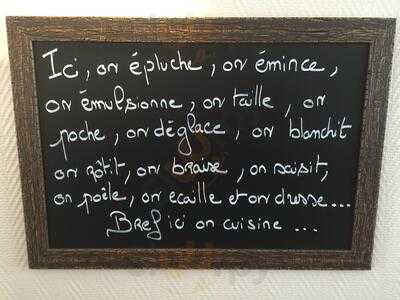 Ici, on épluche, on émince,
on émulsionne, on taille, on
poche, on déglace, on blanchit
on rôtit, on braise, on saisit,
on poêle, on ecaille et on dresse...
Bref ici on cuisine ...